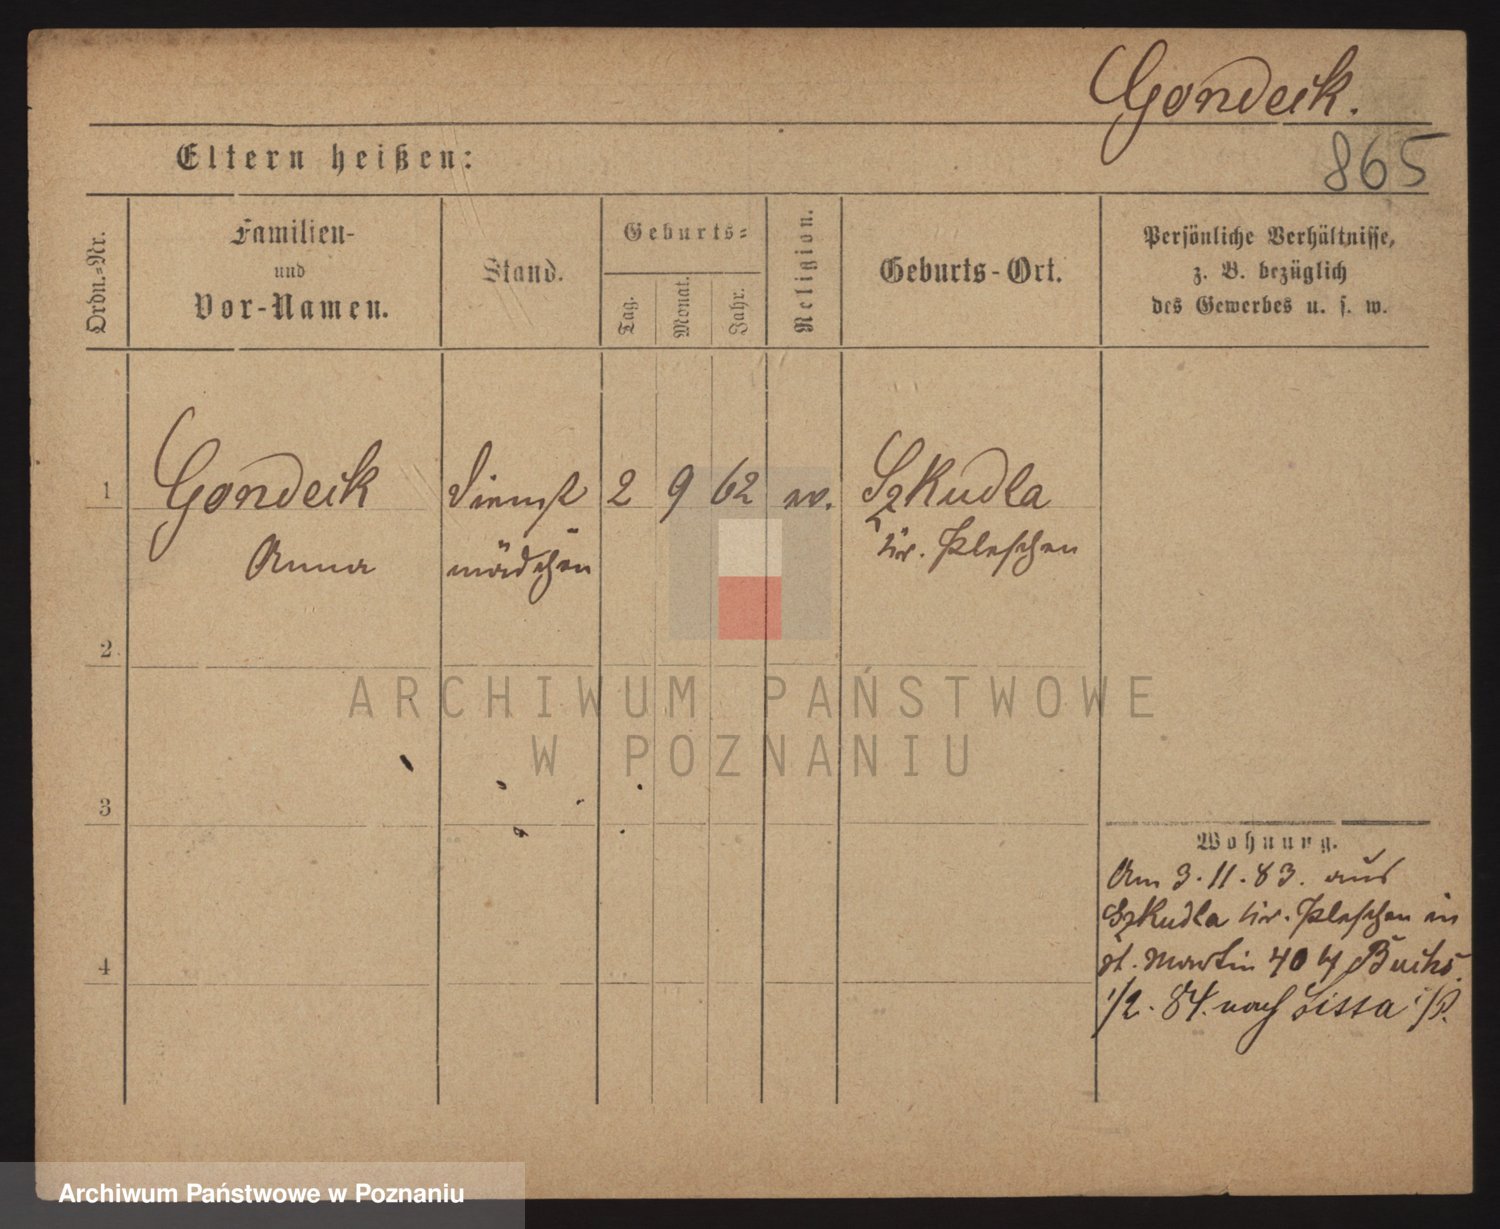 Gondeck.
Eltern heißen:
865
Ordn.=Nr.
Familien-
und
Vor-Namen.
Stand.
Geburts=
Tag.
Monat.
Jahr.
Religion.
Geburts-Ort.
Persönliche Verhältnisse,
z. B. bezüglich
des Gewerbes u. s. w.
1
Gondeck
Anna
Dienst
mädchen
2 9 62
Szkudla
Kr. Pleschen
2
ARCHIWUM PAŃSTWOWE
W POZNANIU
3
Wohnung.
Am 3.11.83. aus
Szkudla Kr. Pleschen in
St. Martin 40
4
1/2. 84. nach Lissa i/P.
Archiwum Państwowe w Poznaniu